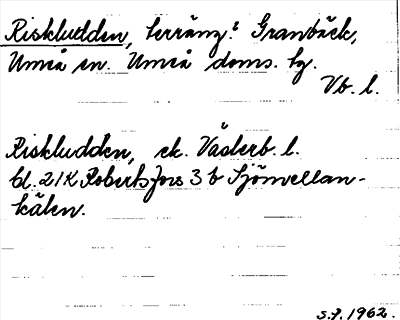 Riskludden, terräng: Granbäck,
Umeå sn. Umeå doms. tg.
Vb. l.
Riskludden, ek. Västerb. l.
bl. 21K Robertsfors 3 b Sjönvellan-
kälen.
S.J. 1962.